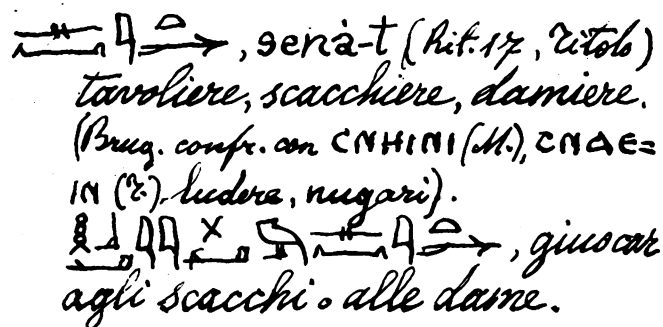 , senȧ-t (Rit. 17, Titolo)
tavoliere, scacchiere, damiere.
(Brug. confr. con ⲤⲚⲎⲒⲚⲒ (M.), ⲤⲚⲀⲈ=
ⲒⲚ (T.) ludere, nugari).
, giuocar
agli scacchi o alle dame.